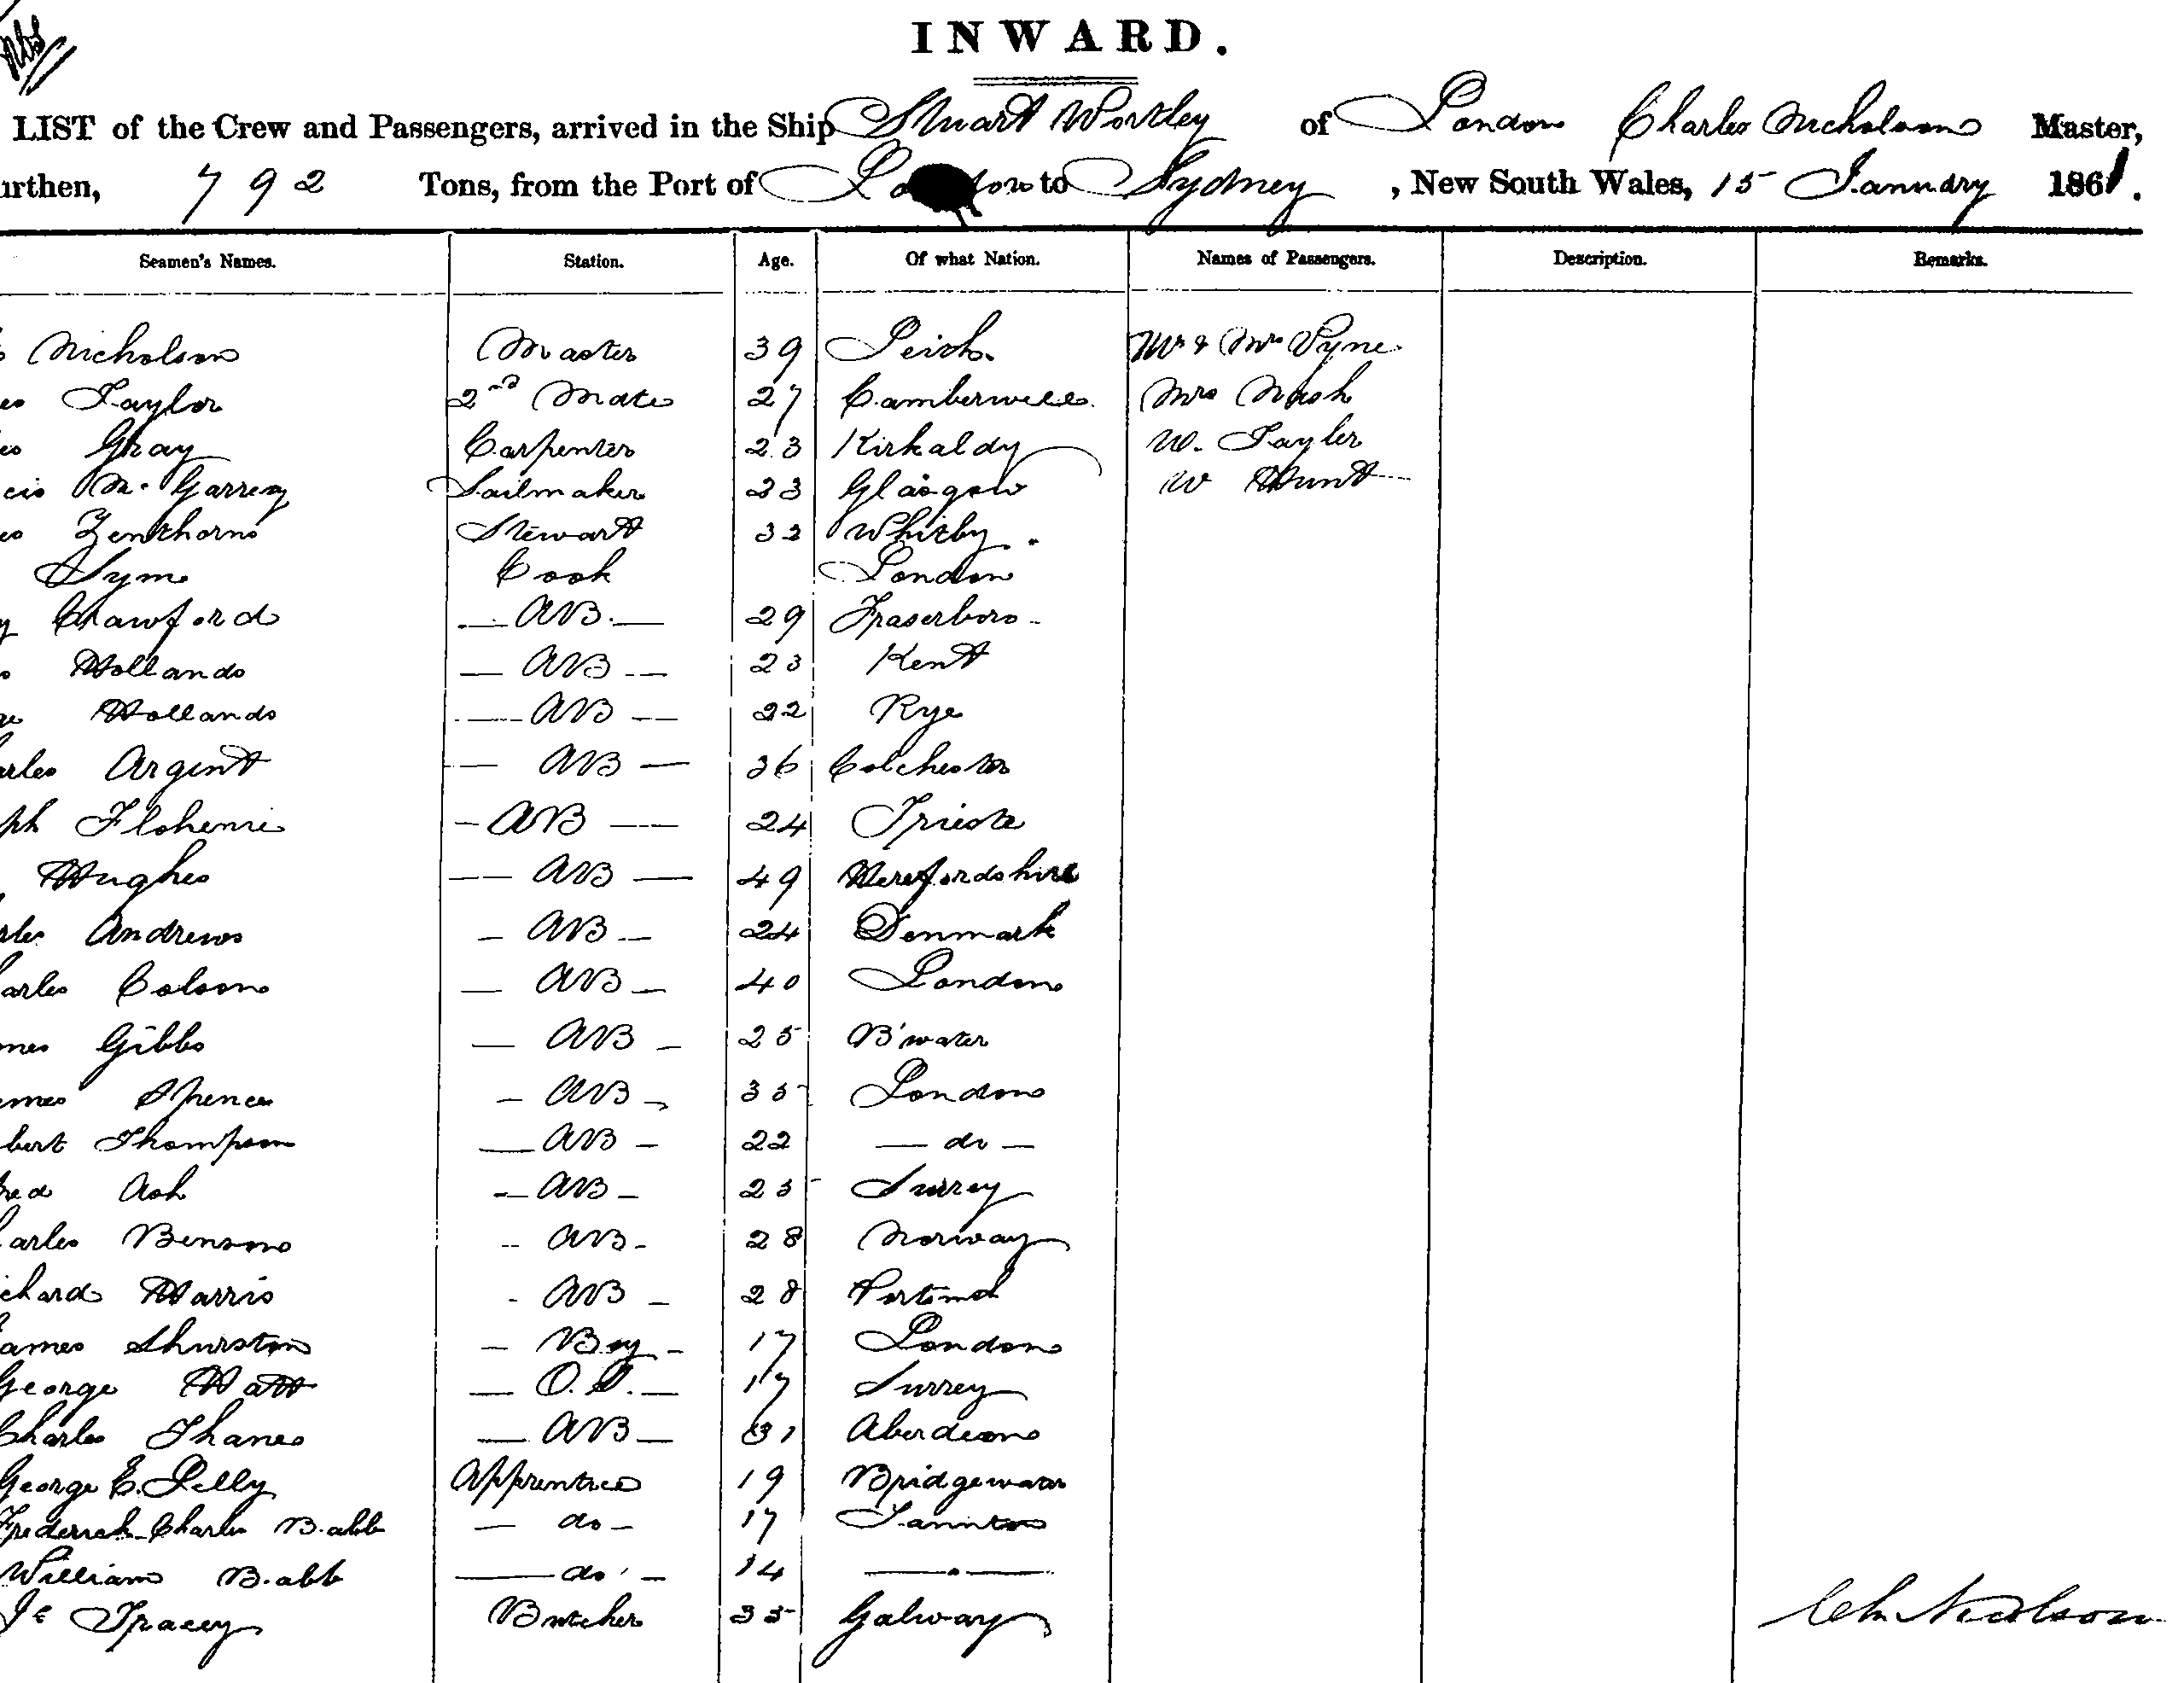 INWARD.
LIST of the Crew and Passengers, arrived in the Ship Stuart Wortley of London Charles Nicholson Master,
urthen, 792 Tons, from the Port of London to Sydney, New South Wales, 15 January 1861.
Seamen's Names. Station. Age. Of what Nation. Names of Passengers. Description. Remarks.
Nicholson Master 39 Leith. Mr & Mrs Pyne
es Taylor 2nd Mate 27 Camberwell. Mrs Nash
es Gray Carpenter 23 Kirkaldy W. Tayler
cis Mc Garrey Sailmaker 23 Glasgow W Hunt
es Zenthorne Stewart 32 Whitby.
Syme Cook London
y Crawford AB. 29 Fraserboro
s Hollands AB 23 Kent
ge Hollands AB 22 Rye
arles Argent AB 36 Colchester
ph Flohenri AB 24 Trieste
Hughes AB 49 Herefordshire
rles Andrews AB 24 Denmark
arles Colson AB 40 London
mes Gibbs AB 25 B'water
ames Spence AB 35 London
bert Thompson AB 22 — do —
red Ash AB 25 Surrey
arles Benson AB 28 Norway
ichard Harris AB 28 Portsmd
James Thurston Boy 17 London
George Hatt O.S. 17 Surrey
Charles Thanes AB 31 Aberdeen
George E. Pelly Apprentice 19 Bridgewater
Frederick Charles Babb — do — 17 Taunton
William Babb — do — 14 — " —
Js Tracey Butcher 35 Galway Chs Nicolson